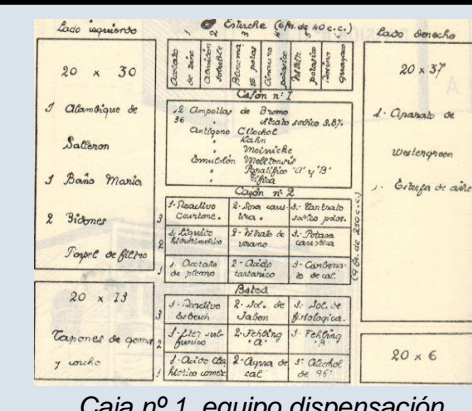 Lado izquierdo
20 x 30
1 Alambique de
Salleron
1 Baño Maria
2 Bidones
Papel de filtro
20 x 13
Tapones de goma
y corcho
Estuche (6 fr. de 40 c.c.)
1 2 3
Acetato de zinc
Almidon soluble
potasico
Cajón nº 1
12 Ampollas de Bromo
36 " Citrato sodico 3.8%
Antígeno Citochol
" Kahn
" Meinicke
Emulsión Melitensis
" Paratífico "A" y "B"
" Tífica
Cajón nº 2
3 1-Reactivo Courtone. 2-Sosa caustica. 3-Tartrato sodico potas.
2 1-Liquido 2-Nitrato de urano 3-Potasa caustica
1 1-Acetato de plomo 2-Acido tartarico 3-Carbonato de cal.
(9 fr. de 250 c.c.)
3 1-Reactivo Esbach 2-Sol. de Jabon 3-Sol. Se fisiologica.
2 1-Eter sulfurico 2-Fehling "A" 3-Fehling
1 1-Acido Clorhidrico comer. 2-Agua de cal 3-Alcohol de 96°
Lado derecho
20 x 37
1-Aparato de
Westergreen
1-Estufa de aire
20 x 6
Caja nº 1, equipo dispensación